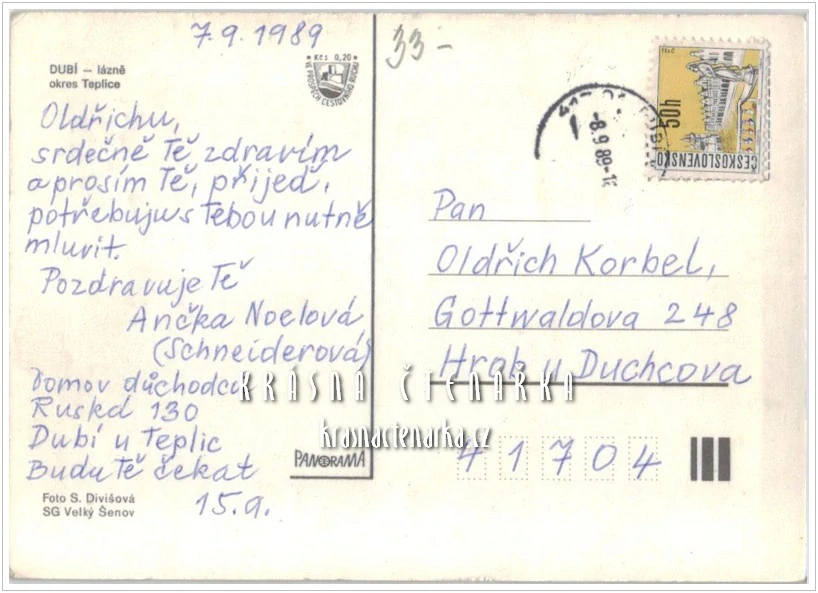 7.9.1989
33-
DUBÍ – lázně
okres Teplice
Kčs 0,20
VE PROSPĚCH CESTOVNÍHO RUCHU
Oldřichu,
srdečně Tě zdravím
a prosím Tě, přijeď,
potřebuju s Tebou nutně
mluvit.
Pozdravuje Tě
Ančka Noelová
(Schneiderová)
Domov důchodců
Ruská 130
Dubí u Teplic
Budu Tě čekat
15.9.
Foto S. Divišová
SG Velký Šenov
PANORAMA
-8.9.89-1
ČESKOSLOVENSKO
50h
TELČ
Pan
Oldřich Korbel,
Gottwaldova 248
Hrob u Duchcova
41704
KRÁSNÁ ČTENÁRKA
krasnactenarka.cz